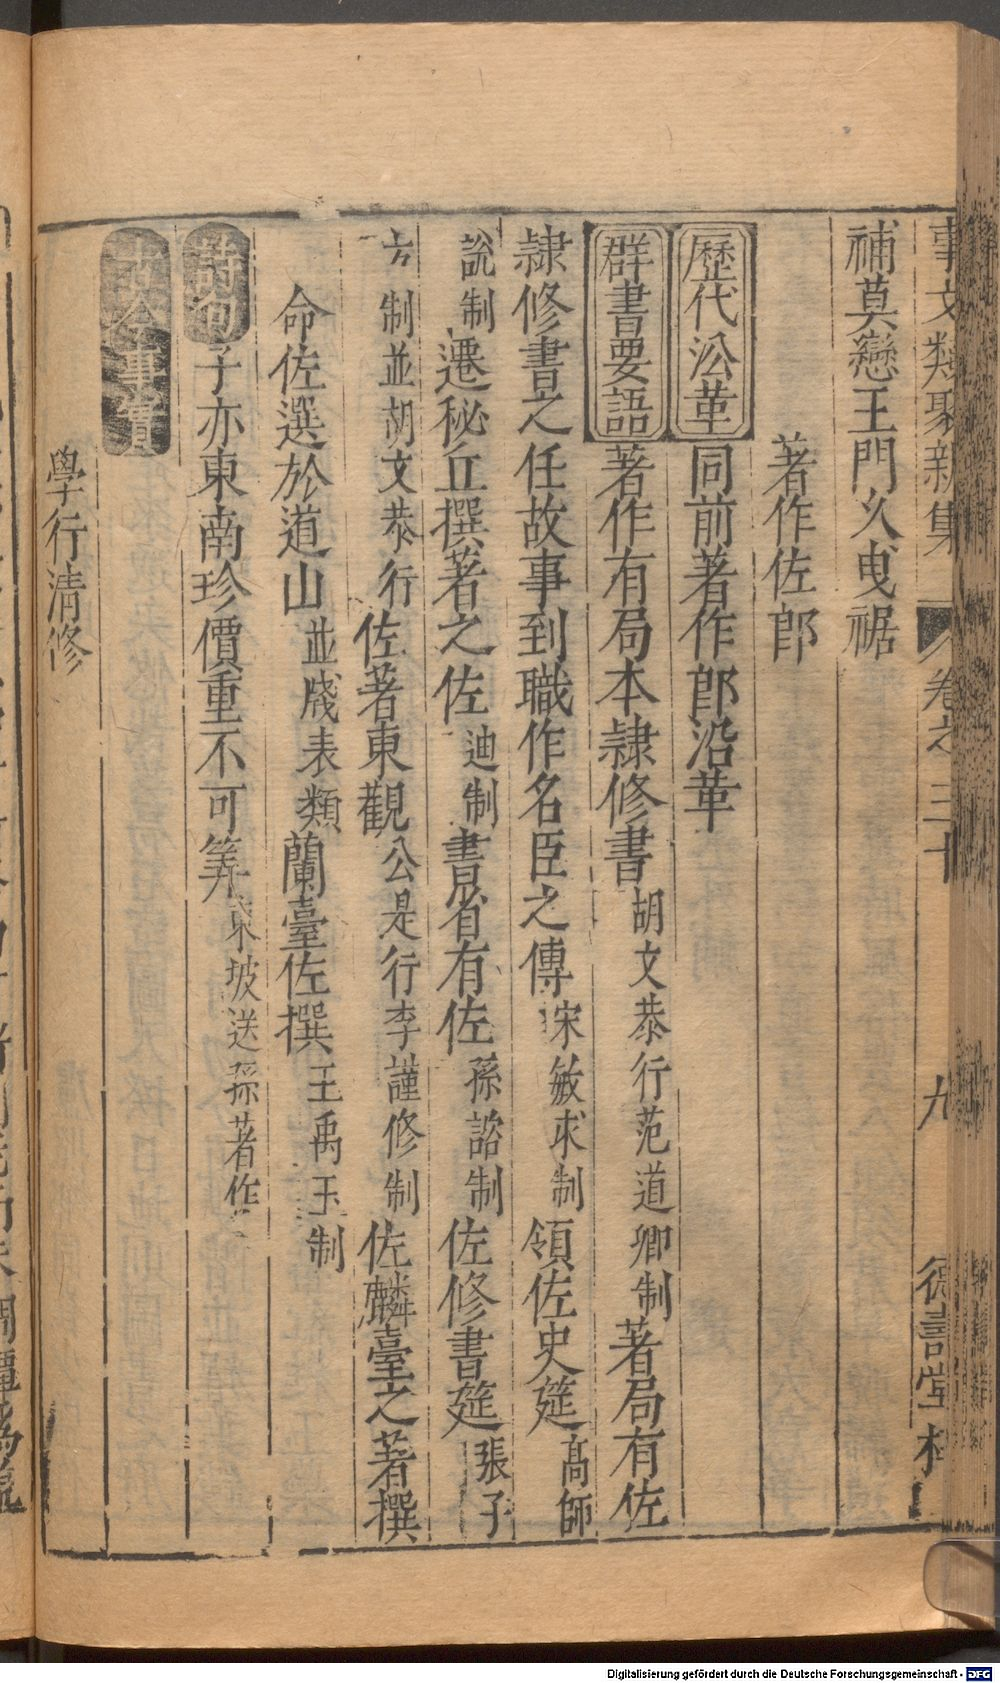 事文類聚新集 卷之三十 九 德壽堂梓
補莫戀王門久曳裾
著作佐郎
歷代沿革 同前著作郎沿革
群書要語 著作有局本隸修書 胡文恭行范道卿制 著局有佐
隸修書之任故事到職作名臣之傳 宋敏求制 領佐史筵 髙師
說制 遷秘丘撰著之佐 迪制 書省有佐 孫諮制 佐修書筵 張子
方制並胡文恭行 佐著東觀 公是行李謹修制 佐麟臺之著撰
命佐選於道山 並牋表類 蘭臺佐撰 王禹玉制
詩句 子亦東南珍價重不可筭 東坡送孫著作
古今事實
學行清修
Digitalisierung gefördert durch die Deutsche Forschungsgemeinschaft - DFG